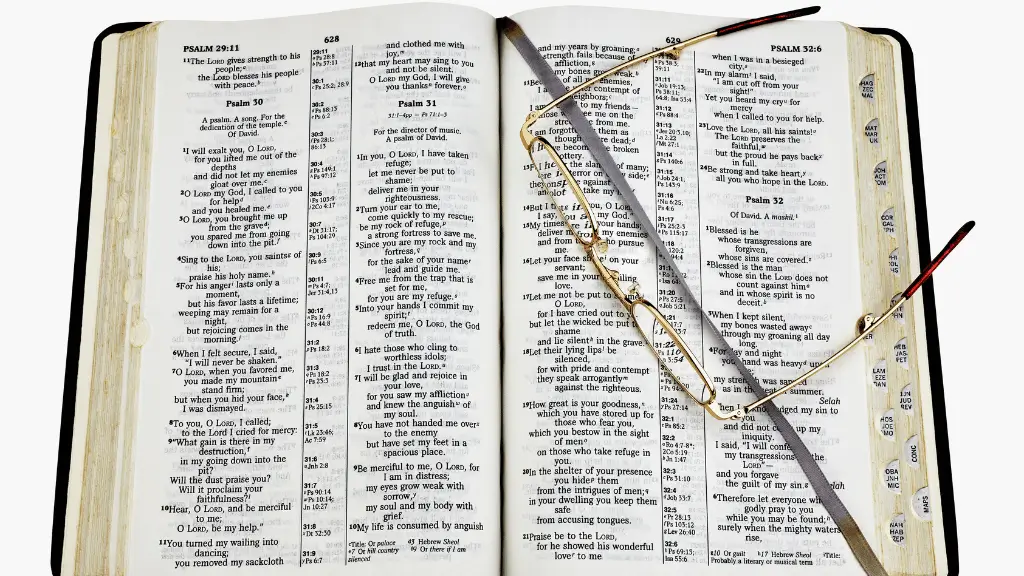 PSALM 29:11
628
11The LORD gives strength to his
people;
the LORD blesses his people
with peace.
Psalm 30
A psalm. A song. For the
dedication of the temple.
Of David.
1I will exalt you, O LORD,
for you lifted me out of the
depths
and did not let my enemies
gloat over me.
2O LORD my God, I called to you
for help
and you healed me.
3O LORD, you brought me up
from the grave;
you spared me from going
down into the pit.
4Sing to the LORD, you saints of
his;
praise his holy name.
5For his anger lasts only a
moment,
but his favor lasts a lifetime;
weeping may remain for a
night,
but rejoicing comes in the
morning.
6When I felt secure, I said,
"I will never be shaken."
7O LORD, when you favored me,
you made my mountain
stand firm;
but when you hid your face,
I was dismayed.
8To you, O LORD, I called;
to the Lord I cried for mercy:
9"What gain is there in my
destruction,
in my going down into the
pit?
Will the dust praise you?
Will it proclaim your
faithfulness?
10Hear, O LORD, and be merciful
to me;
O LORD, be my help."
11You turned my wailing into
dancing;
you removed my sackcloth
29:11
Ps 28:8
Ps 37:11
30:1
Ps 25:2; 28:9
30:2
Ps 88:13
Ps 6:2
30:3
Ps 28:1;
86:13
30:4
Ps 149:1
Ps 97:12
30:5
Ps 103:9
2Co 4:17
30:7
Dt 31:17;
Ps 104:29
30:9
Ps 6:5
30:11
Ps 4:7;
Jer 31:4,13
30:12
Ps 16:9
Ps 44:8
31:2
Ps 18:2
31:3
Ps 18:2
Ps 23:3
31:4
Ps 25:15
31:5
Lk 23:46;
Ac 7:59
31:6
Jnh 2:8
31:7
Ps 90:14
Ps 10:14;
Jn 10:27
31:8
Dt 32:30
31:9
Ps 6:7
and clothed me with
joy,
12that my heart may sing to you
and not be silent.
O LORD my God, I will give
you thanks forever.
Psalm 31
31:1-4pp — Ps 71:1-3
For the director of music.
A psalm of David.
1In you, O LORD, I have taken
refuge;
let me never be put to
shame;
deliver me in your
righteousness.
2Turn your ear to me,
come quickly to my rescue;
be my rock of refuge,
a strong fortress to save me.
3Since you are my rock and my
fortress,
for the sake of your name
lead and guide me.
4Free me from the trap that is
set for me,
for you are my refuge.
5Into your hands I commit my
spirit;
redeem me, O LORD, the God
of truth.
6I hate those who cling to
worthless idols;
I trust in the LORD.
7I will be glad and rejoice in
your love,
for you saw my affliction
and knew the anguish of
my soul.
8You have not handed me over
to the enemy
but have set my feet in a
spacious place.
9Be merciful to me, O LORD, for
I am in distress;
my eyes grow weak with
sorrow,
my soul and my body with
grief.
10My life is consumed by anguish
Title: Or palace #3 Hebrew Sheol
#7 Or hill country #9 Or there if I am
silenced
629
PSALM 32:6
and my years by groaning;
strength fails because of
affliction,
my bones grow weak.
of all my enemies,
contempt of
neighbors;
I am to my friends—
those who me on the
from me.
am forgotten them as
though dead;
become broken
pottery.
slander of many;
terror on side;
they against
take my
14But I you, O LORD;
I say, my God."
15My times your hands;
deliver my enemies
and from who pursue
me.
16Let your face on your
servant;
save me in your unfailing
love.
17Let me not be put to shame,
O LORD,
for I have cried out to
but let the wicked be put
shame
and lie silent in the grave.
18Let their lying lips be
silenced,
for with pride and contempt
they speak arrogantly
against the righteous.
19How great is your goodness,
which you have stored up for
those who fear you,
which you bestow in the sight
of men
on those who take refuge in
you.
20In the shelter of your presence
you hide them
from the intrigues of men;
in your dwelling you keep them
safe
from accusing tongues.
21Praise be to the LORD,
for he showed his wonderful
love to me
39:11
31:11
Job 19:13;
Ps 38:11;
64:8; Isa 53:4
31:12
Ps 88:4
31:13
Jer 20:3,10;
La 2:22
Mt 27:1
31:14
Ps 140:6
31:15
Job 24:1;
Ps 143:9
31:16
Nu 6:25;
Ps 4:6
31:17
Ps 25:2-3
Ps 115:17
31:20
Ps 27:5
Job 5:21
31:24
Ps 27:14
32:1
Ps 85:2
32:2
Ro 4:7-8*;
2Co 5:19
Jn 1:47
32:3
Ps 31:10
32:4
Job 33:7
32:5
Pr 28:13
Ps 103:12
Lev 26:40
32:6
Ps 69:13;
Isa 55:6
when I was in a besieged
city.
22In my alarm I said,
"I am cut off from your
sight!"
Yet you heard my cry for
mercy
when I called to you for help.
23Love the LORD, all his saints!
The LORD preserves the
faithful,
but the proud he pays back
in full.
24Be strong and take heart,
all you who hope in the LORD.
Psalm 32
Of David. A maskil.
1Blessed is he
whose transgressions are
forgiven,
whose sins are covered.
2Blessed is the man
whose sin the LORD does not
count against him
and in whose spirit is no
deceit.
3When I kept silent,
my bones wasted away
through my groaning all day
long.
4For day and night
your hand was heavy upon
my strength was sapped
as in the heat summer.
Selah
Then I acknowledged my sin to
you
and did not cover up my
iniquity.
I said, "I will confess
my transgressions the
LORD"—
and you forgave
the guilt of my sin. Selah
6Therefore let everyone who
godly pray to you
while you may be found;
surely when the mighty waters
rise,
#10 Or guilt #17 Hebrew Sheol Title:
Probably a literary or musical term
HAG
ZEC
MAL
MAT
MAR
LUK
JOH
ACT
ROM
COR
GAL
EPH
LAM
EZE
DAN
HOS
JOE
AMO
CONC
OBA
JNH
MIC
MAPS
NAH
HAB
ZEP